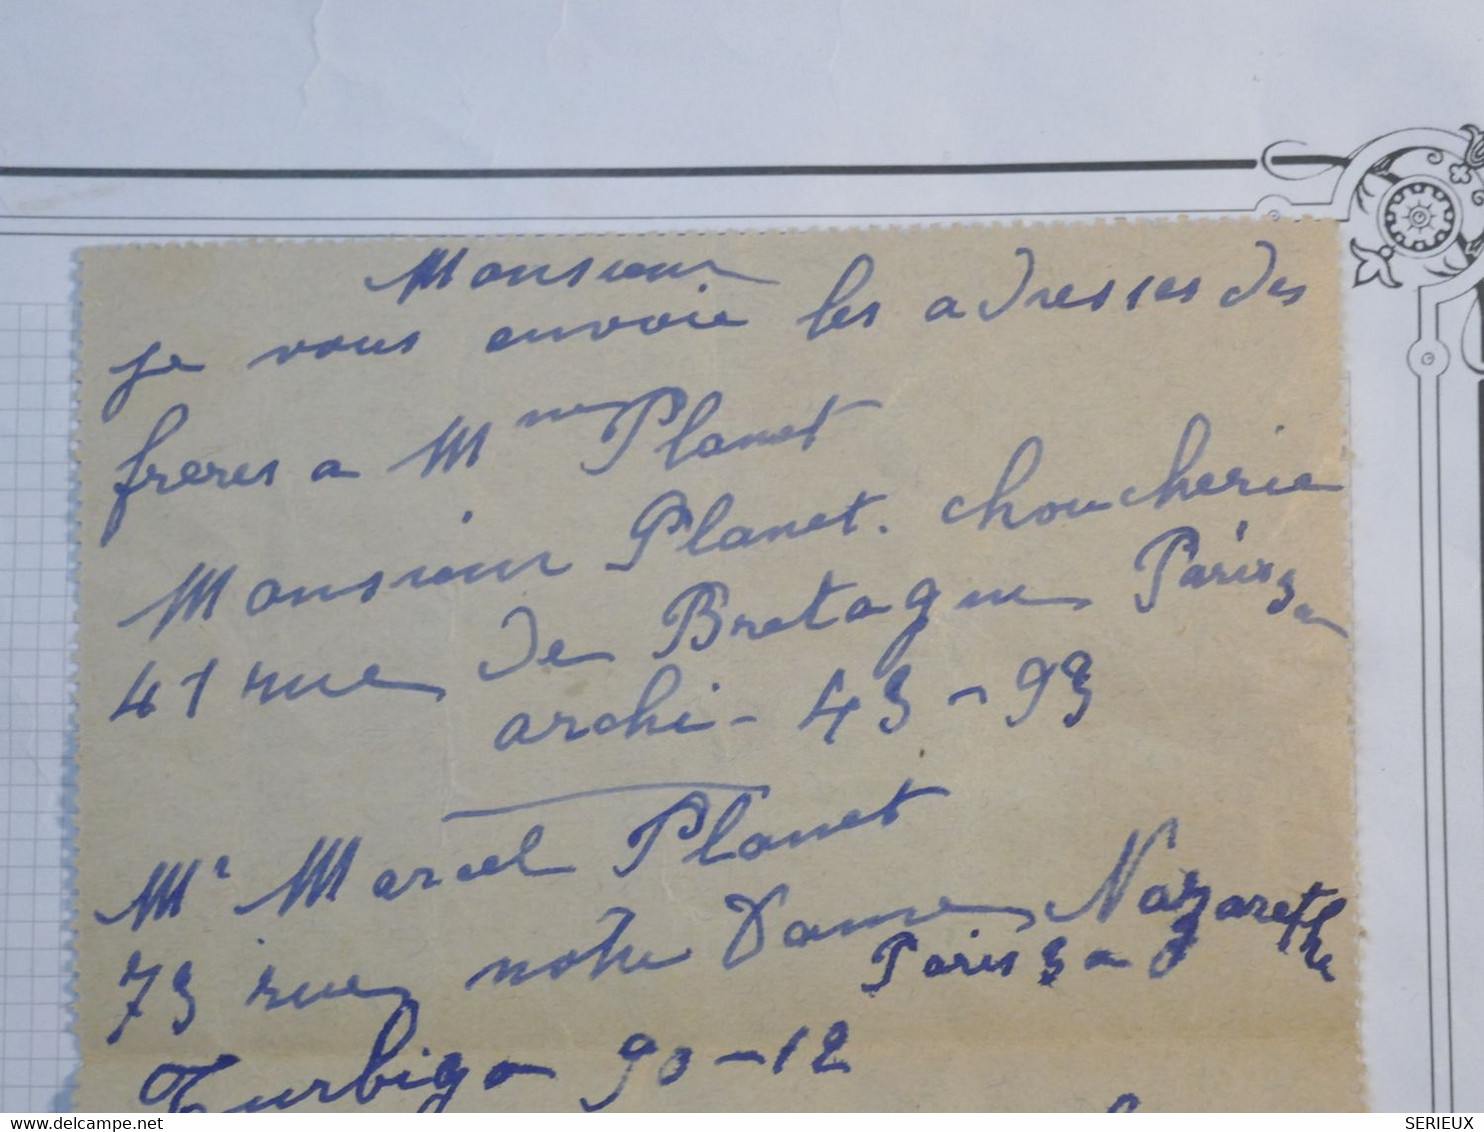 Monsieur
je vous envoie les adresses des
freres a Mme Planet
Monsieur Planet. choucherie
41 rue de Bretagne Paris 3e
archi - 43 - 93
Mr Marcel Planet
73 rue notre Dame Nazareth
Paris 3e
Turbigo 90 - 12
delcampe.net
SERIEUX